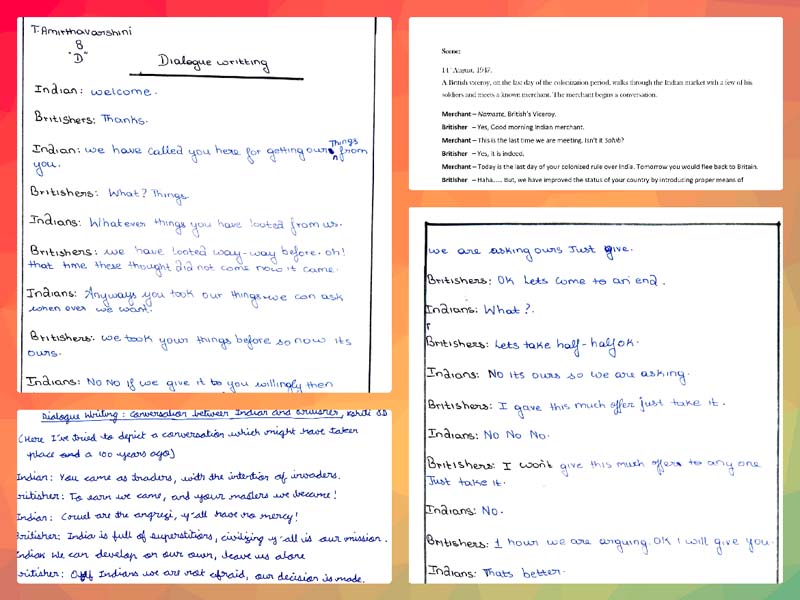 T. Amirthavarshini
8
"D"
Dialogue writting
Indian: welcome.
Britishers: Thanks.
Indian: we have called you here for getting ours Things from
you.
Britishers: What? Things
Indians: Whatever things you have looted from us.
Britishers: we have looted way-way before. oh!
that time these thought did not come now it came.
Indians: Anyways you took our things we can ask
when ever we want.
Britishers: we took your things before so now its
ours.
Indians: No No if we give it to you willingly then
Scene:
14 August, 1947.
A British viceroy, on the last day of the colonization period, walks through the Indian market with a few of his
soldiers and meets a known merchant. The merchant begins a conversation.
Merchant – Namaste, British's Viceroy.
Britisher – Yes, Good morning Indian merchant.
Merchant – This is the last time we are meeting. Isn't it Sahib?
Britisher – Yes, it is indeed.
Merchant – Today is the last day of your colonized rule over India. Tomorrow you would flee back to Britain.
Britisher – Haha..... But, we have improved the status of your country by introducing proper means of
we are asking ours Just give.
Britishers: OK Lets come to an end.
Indians: What?.
Britishers: Lets take half-half ok.
Indians: No its ours so we are asking.
Britishers: I gave this much offer just take it.
Indians: No No No.
Britishers: I won't give this much offer to any one
Just take it.
Indians: No.
Britishers: 1 hour we are arguing. OK I will give you.
Indians: Thats better.
Dialogue Writing: Conversation between Indian and Britisher, Kshiti 8D
(Here I've tried to depict a conversation which might have taken
place a 100 years ago)
Indian: You came as traders, with the intention of invaders.
Britisher: To earn we came, and your masters we became!
Indian: Cruel are the angrezi, y'all have no mercy!
Britisher: India is full of superstitions, civilizing y'all is our mission.
Indian: We can develop on our own, leave us alone
Britisher: Of Indians we are not afraid, our decision is made.